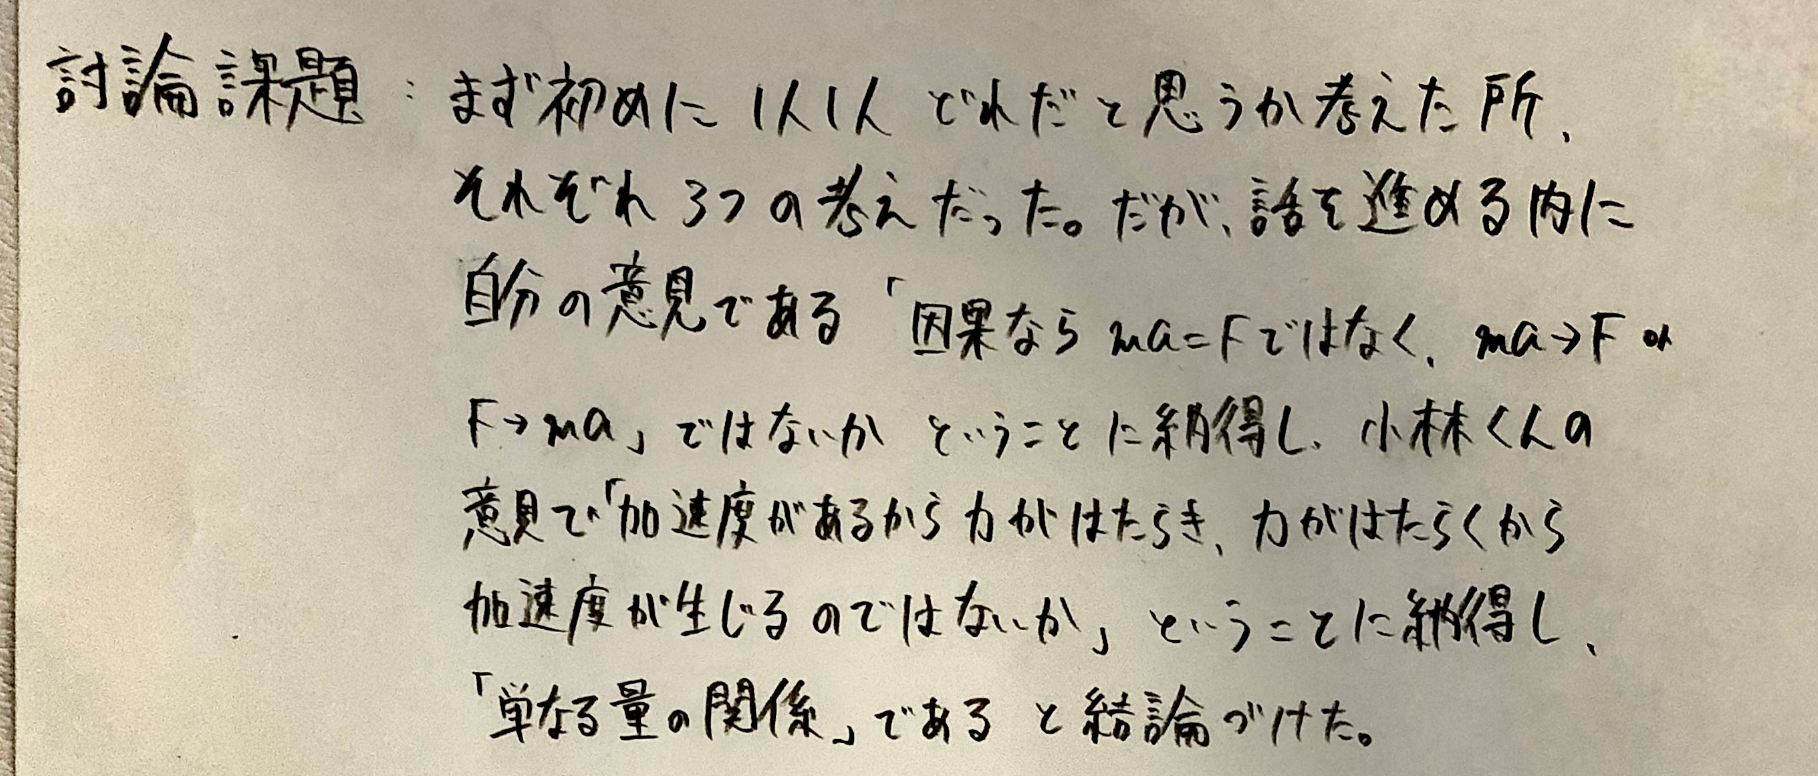 討論課題：まず初めに1人1人どれだと思うか考えた所、
それぞれ3つの考えだった。だが、話を進める内に
自分の意見である「因果ならma=Fではなく、ma→F or
F→ma」ではないかということに納得し、小林くんの
意見で「加速度があるから力がはたらき、力がはたらくから
加速度が生じるのではないか」ということに納得し、
「単なる量の関係」であると結論づけた。